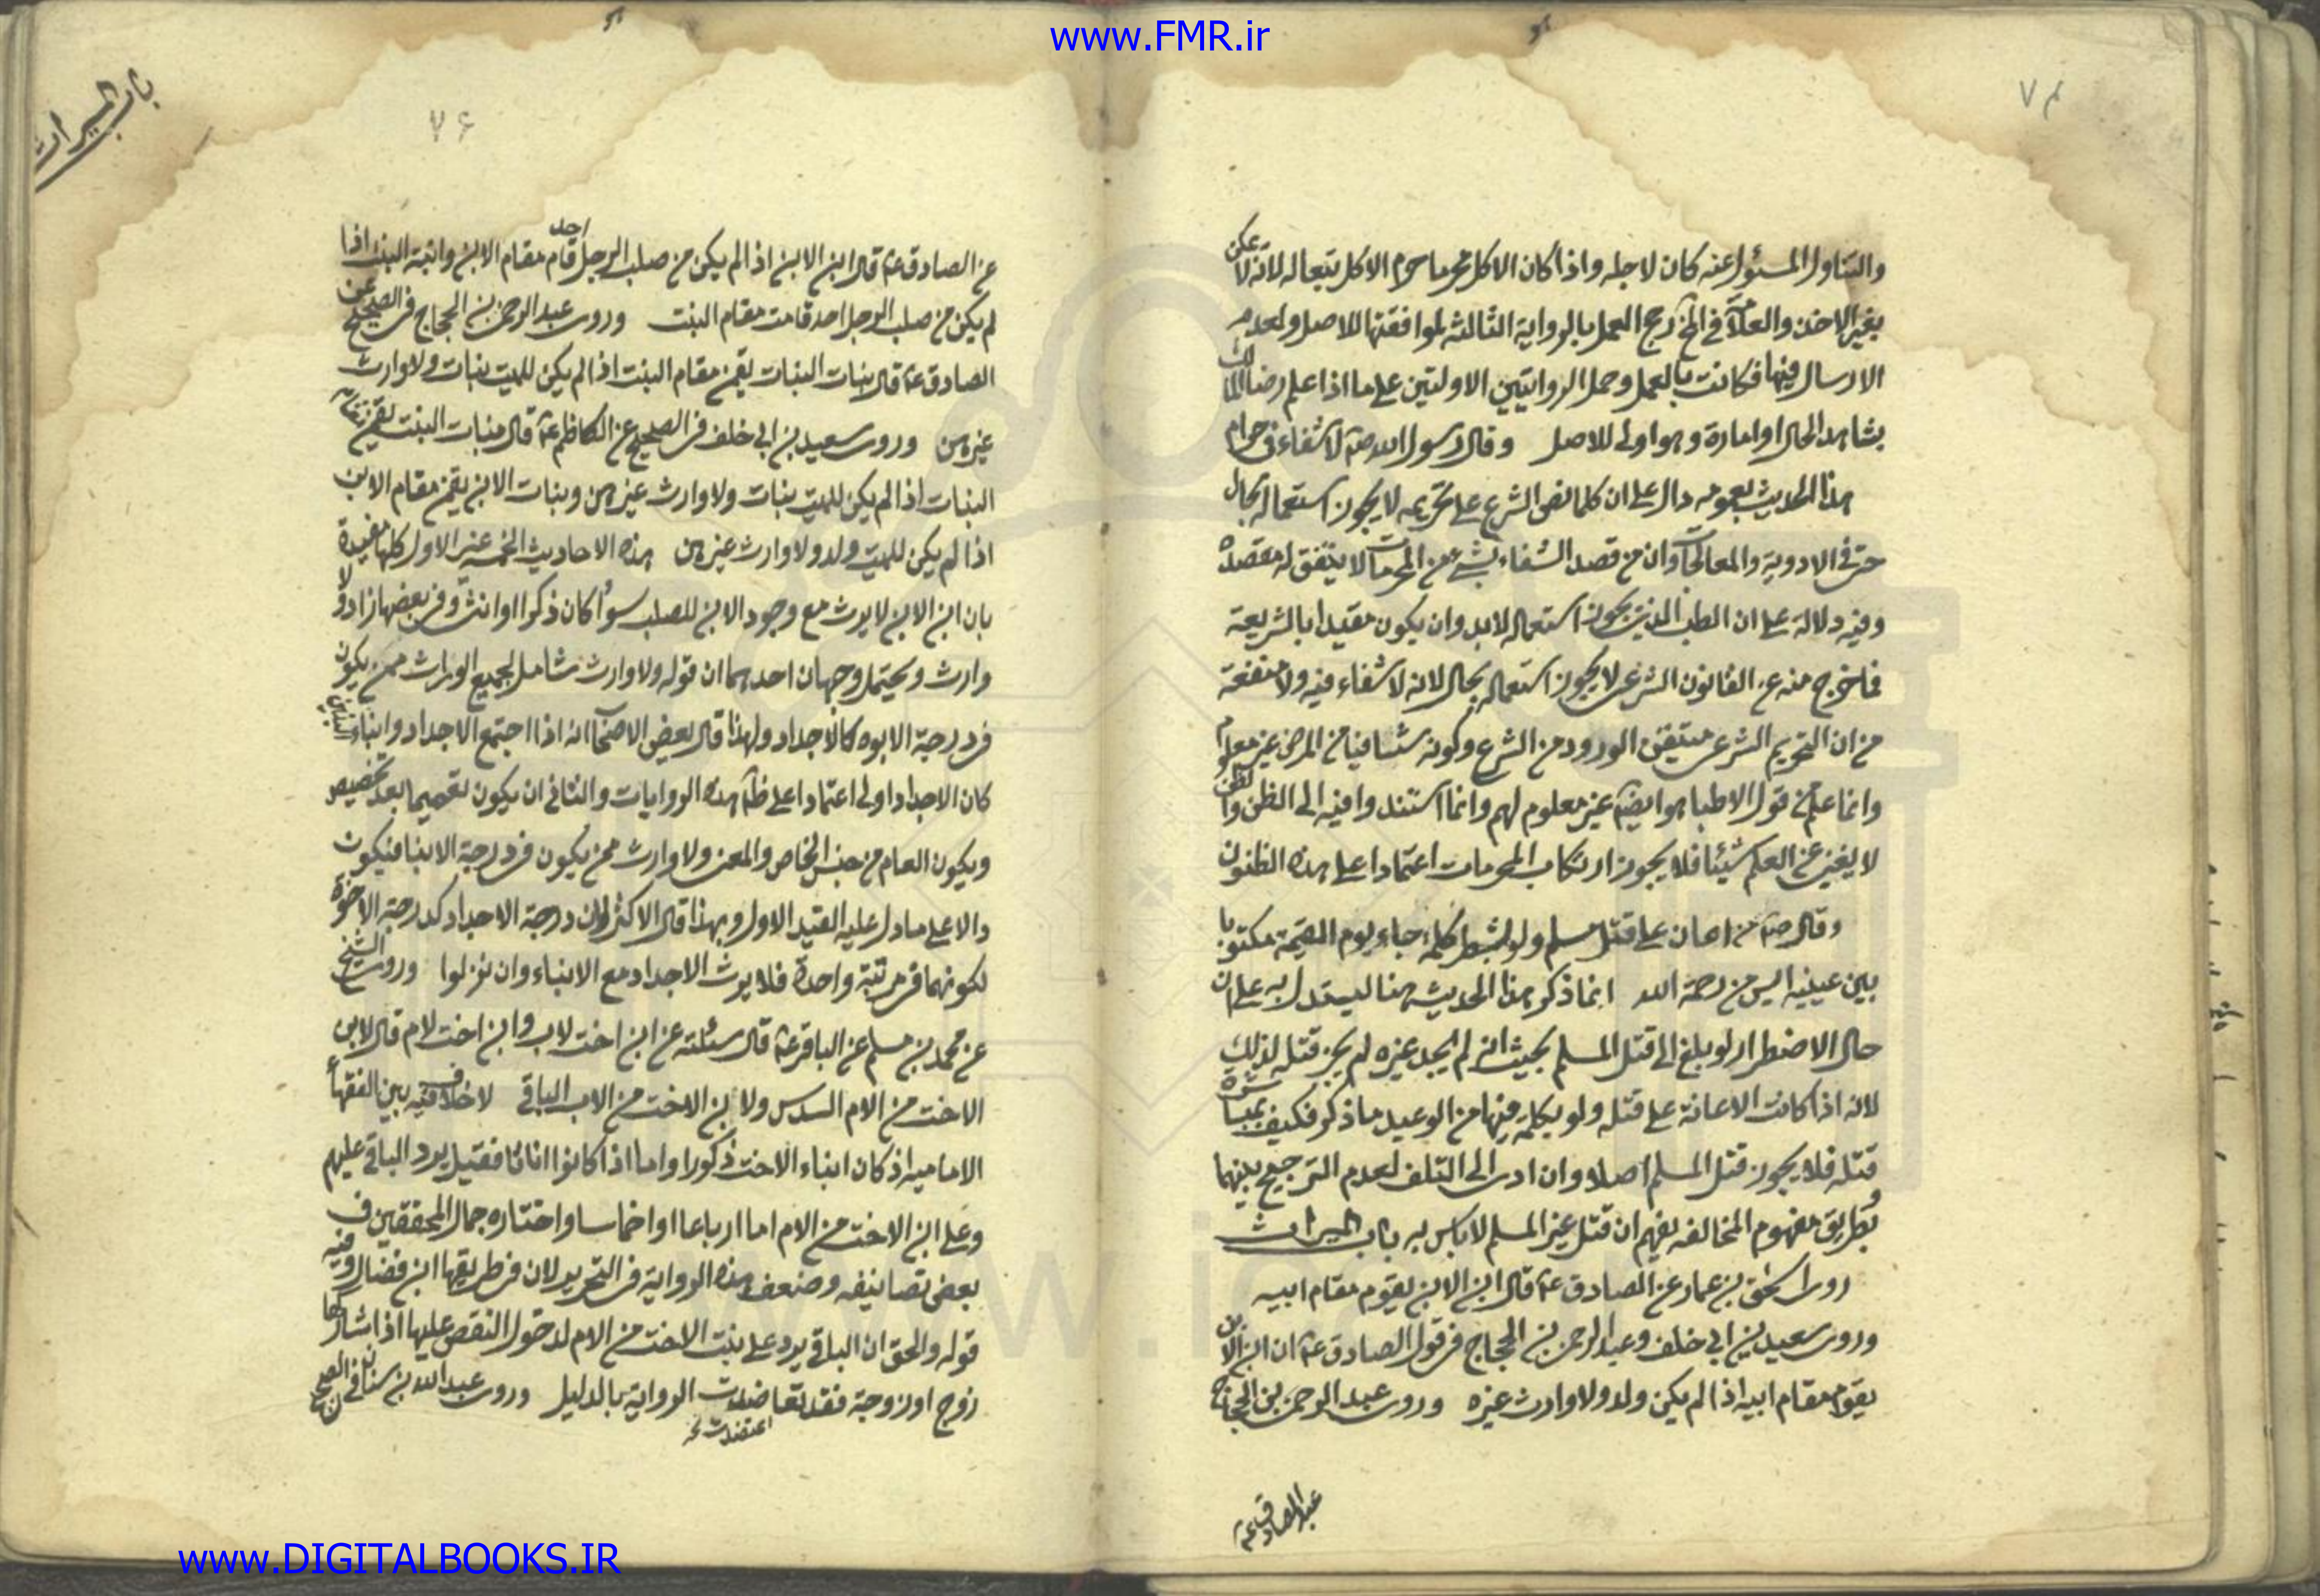 www.FMR.ir
والتناول المسئول عنه كان لاجله واذا كان الاكل محرما حرم الاكل بتعاله لانه لا يمكن
بغير الاخذ والعلامة في رجح العمل بالرواية الثالثة لموافقتها للاصل ولعدم
الارسال فيها فكانت بالعمل وحمل الروايتين الاولتين على ما اذا علم رضا المالك
بشاهد الحال او امارة وهو اولى للاصل وقال رسول الله ص لا شفاء في حرام
هذا الحديث بعمومه دال على ان كلما نص الشرع على تحريمه لا يجوز استعماله بحال
حتى في الادوية والمعالجات وان من قصد الشفاء بشيء من المحرمات لا يتفق له مقصده
وفيه دلالة على ان الطب الذي يجوز استعماله لابد وان يكون مقيدا بالشريعة
فما خرج منه عن القانون الشرعي لا يجوز استعماله بحال لانه لا شفاء فيه ولا منفعة
من ان التحريم الشرعي متيقن الورود من الشرع وكونه شافيا من المرض غير معلوم
وانما علم من قول الاطباء وهو ايضا غير معلوم لهم وانما استندوا فيه الى الظن والظن
لا يغني عن العلم شيئا فلا يجوز ارتكاب المحرمات اعتمادا على هذه الظنون
وقال ص من اعان على قتل مسلم ولو بشطر كلمة جاء يوم القيمة مكتوبا
بين عينيه ايس من رحمة الله انما ذكر هذا الحديث هنا ليستدل به على ان
حال الاضطرار لو بلغ الى قتل المسلم بحيث انه لم يجد غيره لم يجز قتله لذلك
لانه اذا كانت الاعانة على قتله ولو بكلمة فيها من الوعيد ما ذكر فكيف بمباشرة
قتله فلا يجوز قتل المسلم اصلا وان ادى الى التلف لعدم الترجيح بينهما
وبطريق مفهوم المخالفة يفهم ان قتل غير المسلم لا باس به باب الميراث
روى اسحق بن عمار عن الصادق ع قال ابن الابن يقوم مقام ابيه
وروى سعيد بن ابي خلف وعبد الرحمن بن الحجاج في قول الصادق ع ان ابن الابن
يقوم مقام ابيه اذا لم يكن ولد ولا وارث غيره وروى عبد الرحمن بن الحجاج
عن الصادق ع
باب الميراث
٧۶
عن الصادق ع قال ابن الابن اذا لم يكن من صلب الرجل احد قام مقام الابن وابنة البنت اذا
لم يكن من صلب الرجل احد قامت مقام البنت وروى عبد الرحمن بن الحجاج في الصحيح عن
الصادق ع قال بنات البنات يقمن مقام البنت اذا لم يكن للميت بنات ولا وارث
غيرهن وروى سعيد بن ابي خلف في الصحيح عن الكاظم ع قال بنات البنت يقمن مقام
البنات اذا لم يكن للميت بنات ولا وارث غيرهن وبنات الابن يقمن مقام الابن
اذا لم يكن للميت ولد ولا وارث غيرهن هذه الاحاديث الخمسة غير الاول كلها مفيدة
بان ابن الابن لا يرث مع وجود الابن للصلب سواء كان ذكرا او انثى وفي بعضها زاد ولا
وارث ويحتمل وجهان احدهما ان قوله ولا وارث شامل لجميع الوراث ممن يكون
في درجة الابوه كالاجداد ولهذا قال بعض الاصحاب انه اذا اجتمع الاجداد وابناء البنين
كان الاجداد اولى اعتمادا على ظاهر هذه الروايات والثاني ان يكون تعميما بعد تخصيص
ويكون العام من جنس الخاص والمعنى ولا وارث ممن يكون في درجة الابناء فيكون
دالا على ما دل عليه القيد الاول وبهذا قال الاكثر لان درجة الاجداد كدرجة الاخوة
لكونهما في مرتبة واحدة فلا يرث الاجداد مع الابناء وان نزلوا وروى الشيخ
عن محمد بن مسلم عن الباقر ع قال سئلته عن ابن اخت لاب وابن اخت لام قال لابن
الاخت من الام السدس ولابن الاخت من الاب الباقي لا خلاف فيه بين الفقهاء
الاماميه اذ كان ابناء الاخت ذكورا واما اذا كانوا اناثا فقيل يرد الباقي عليهم
وعلى ابن الاخت من الام اما ارباعا او اخماسا واختاره جمال المحققين في
بعض تصانيفه وضعف هذه الرواية في التحرير لان في طريقها ابن فضال وفيه
قوله والحق ان الباقي يرد على بنت الاخت من الام لدخول النقص عليها اذا شاركها
زوج او زوجة فقد تعاضدت الرواية بالدليل وروى عبد الله بن سنان في الصحيح
اعتضدت
www.DIGITALBOOKS.IR